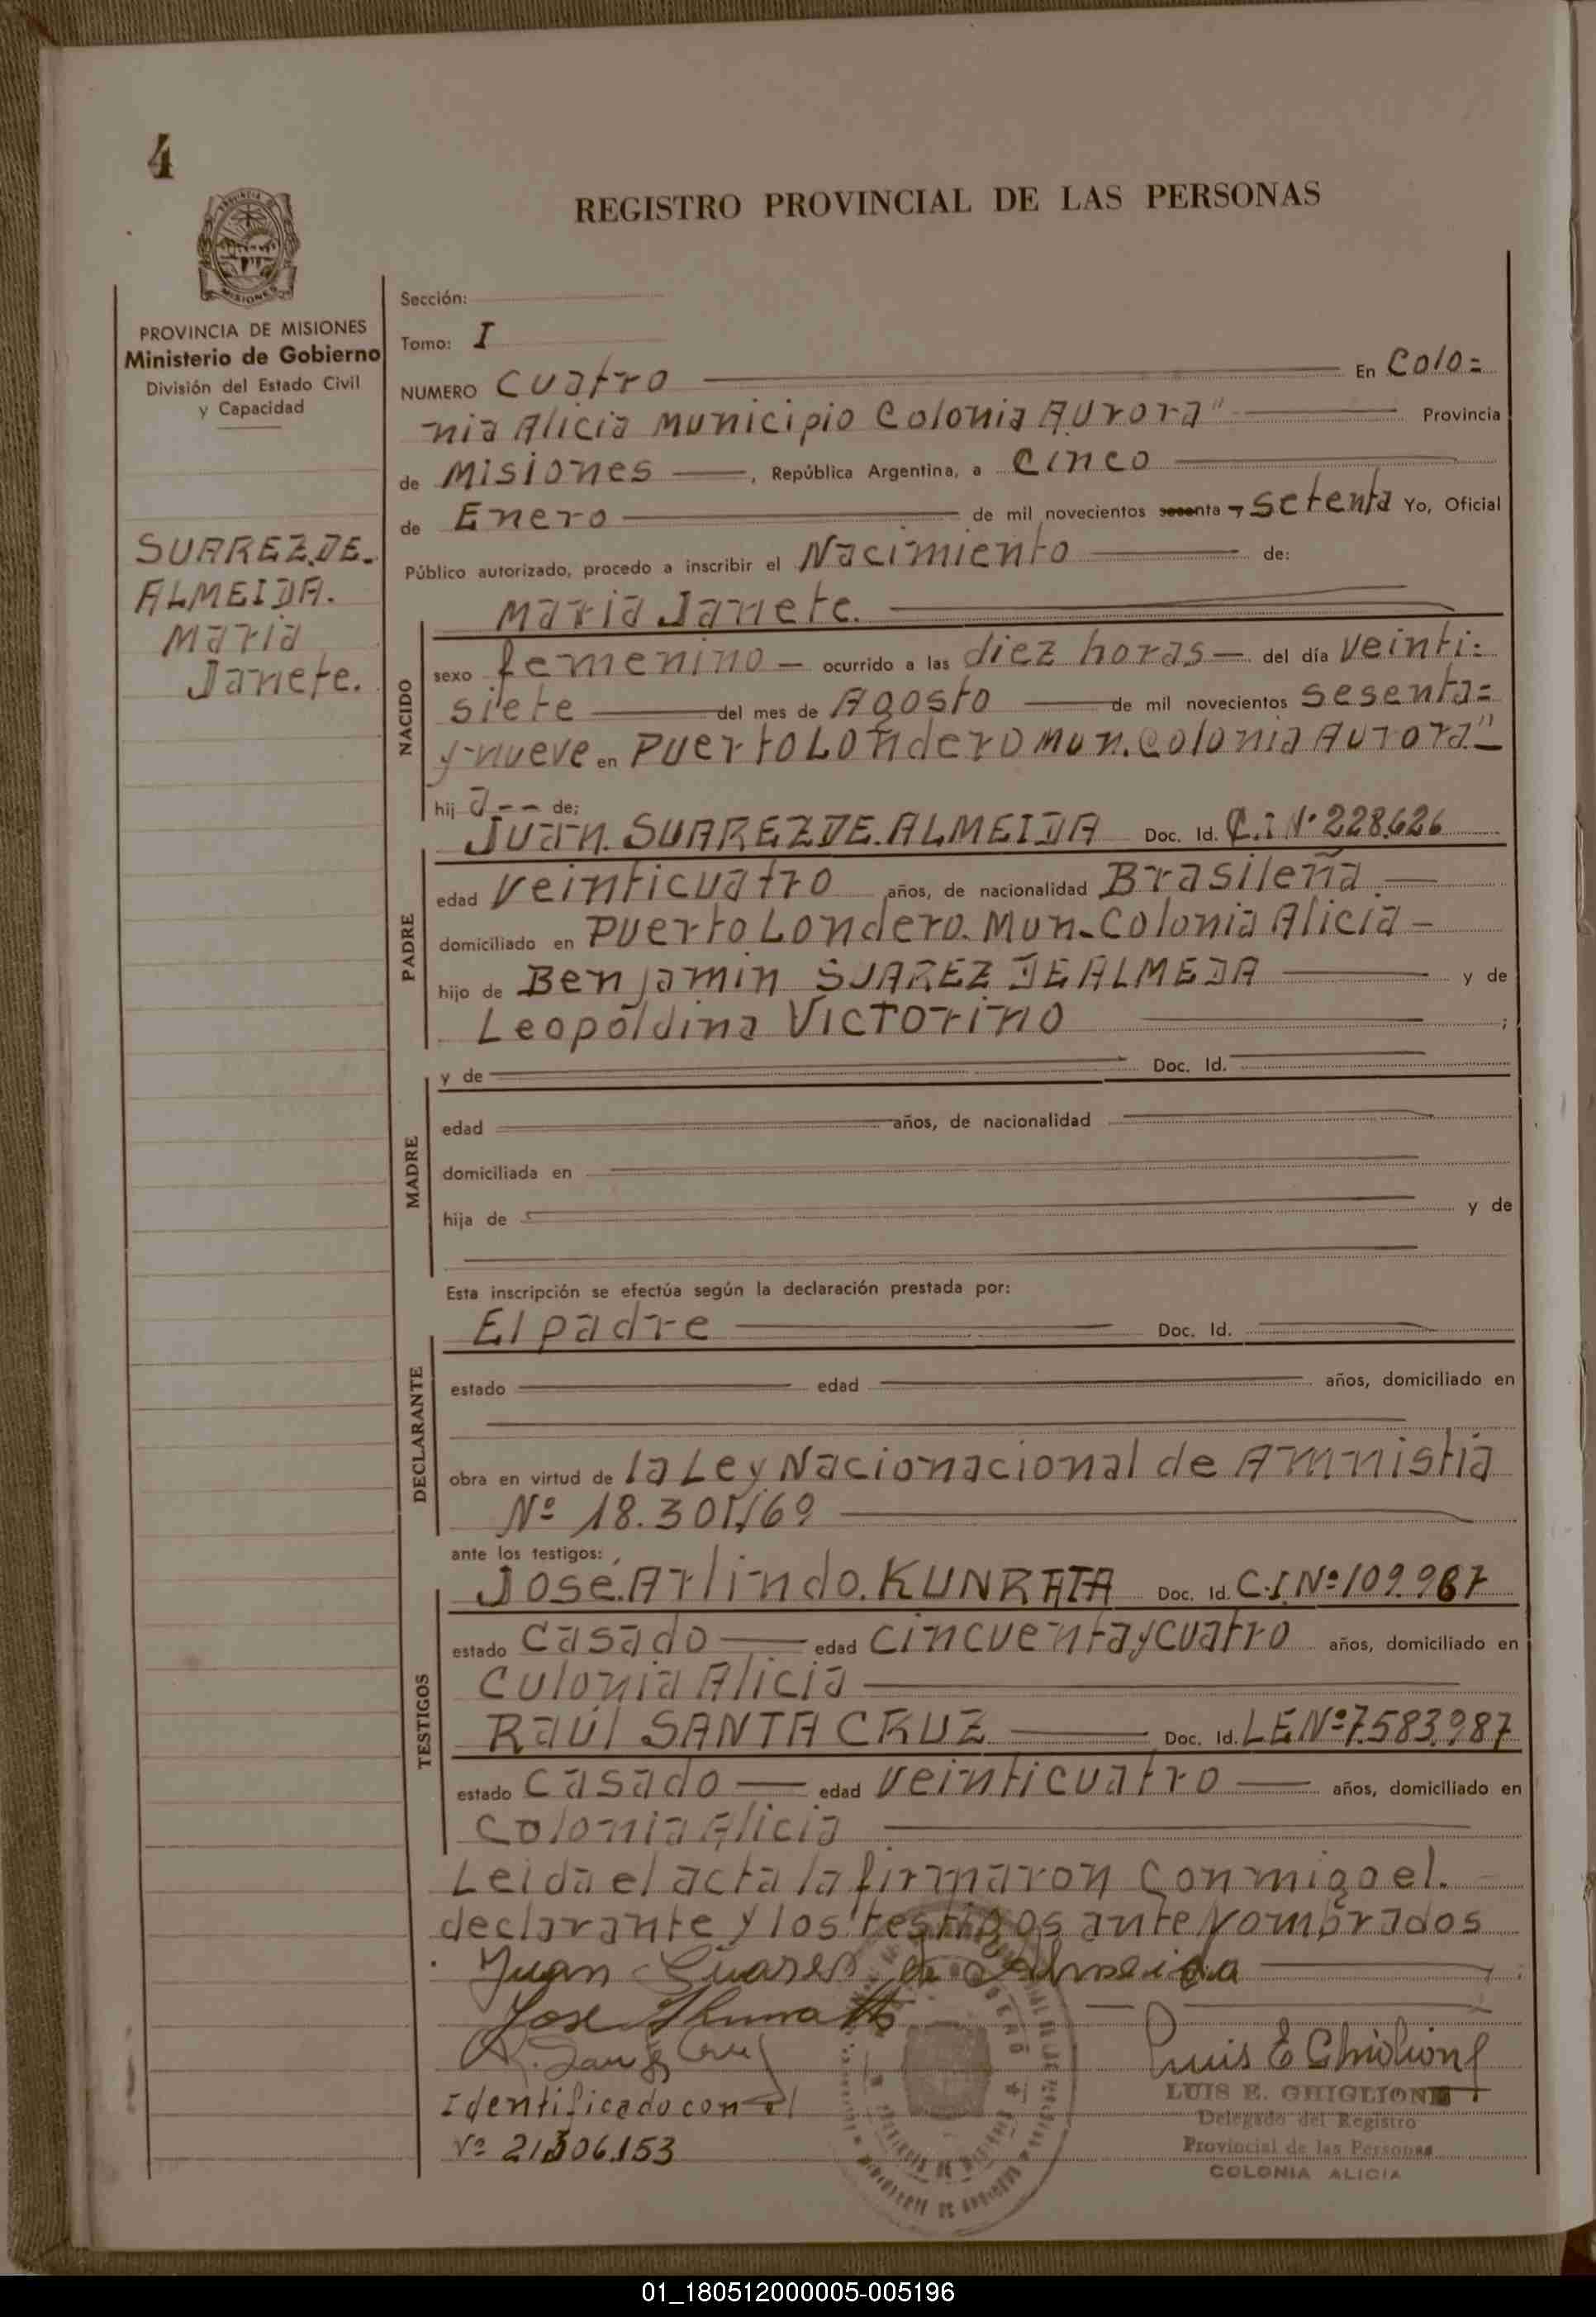 4
REGISTRO PROVINCIAL DE LAS PERSONAS
PROVINCIA DE MISIONES
Ministerio de Gobierno
División del Estado Civil
y Capacidad
SUAREZ.DE.
ALMEIDA.
Maria
Janete.
Sección:
Tomo: I
NUMERO Cuatro En Colo=
nia Alicia Municipio Colonia Aurora" Provincia
de Misiones, República Argentina, a Cinco
de Enero de mil novecientos sesenta y setenta Yo, Oficial
Público autorizado, procedo a inscribir el Nacimiento de:
Maria Janete.
NACIDO
sexo femenino — ocurrido a las diez horas — del día veinti=
siete del mes de Agosto de mil novecientos sesenta=
y nueve en Puerto Londero Mun. Colonia Aurora"
hij a -- de:
Juan. SUAREZ DE. ALMEIDA Doc. Id. C.I Nº 228.626
PADRE
edad veinticuatro años, de nacionalidad Brasileña
domiciliado en Puerto Londero. Mun. Colonia Alicia —
hijo de Benjamin SUAREZ DE ALMEDA y de
Leopoldina VICTorino ;
MADRE
y de Doc. Id.
edad años, de nacionalidad
domiciliada en
hija de y de
Esta inscripción se efectúa según la declaración prestada por:
El padre Doc. Id.
DECLARANTE
estado edad años, domiciliado en
obra en virtud de la Ley Nacionacional de Amnistia
Nº 18.301/69
ante los testigos:
José. Arlindo. KUNRATA Doc. Id. C.I. Nº 109.967
TESTIGOS
estado Casado edad cincuenta y cuatro años, domiciliado en
Colonia Alicia
RAÚl SANTA CRUZ Doc. Id. LE Nº 7.583.987
estado Casado edad veinticuatro años, domiciliado en
Colonia Alicia
Leida el acta la firmaron conmigo el.
declarante y los testigos ante nombrados
Juan Suares de Almeida
Jose
Luis E Ghiglione
LUIS E. GHIGLIONE
Delegado del Registro
Provincial de las Personas
COLONIA ALICIA
Identificado con el
Nº 21.306.153
01_180512000005-005196